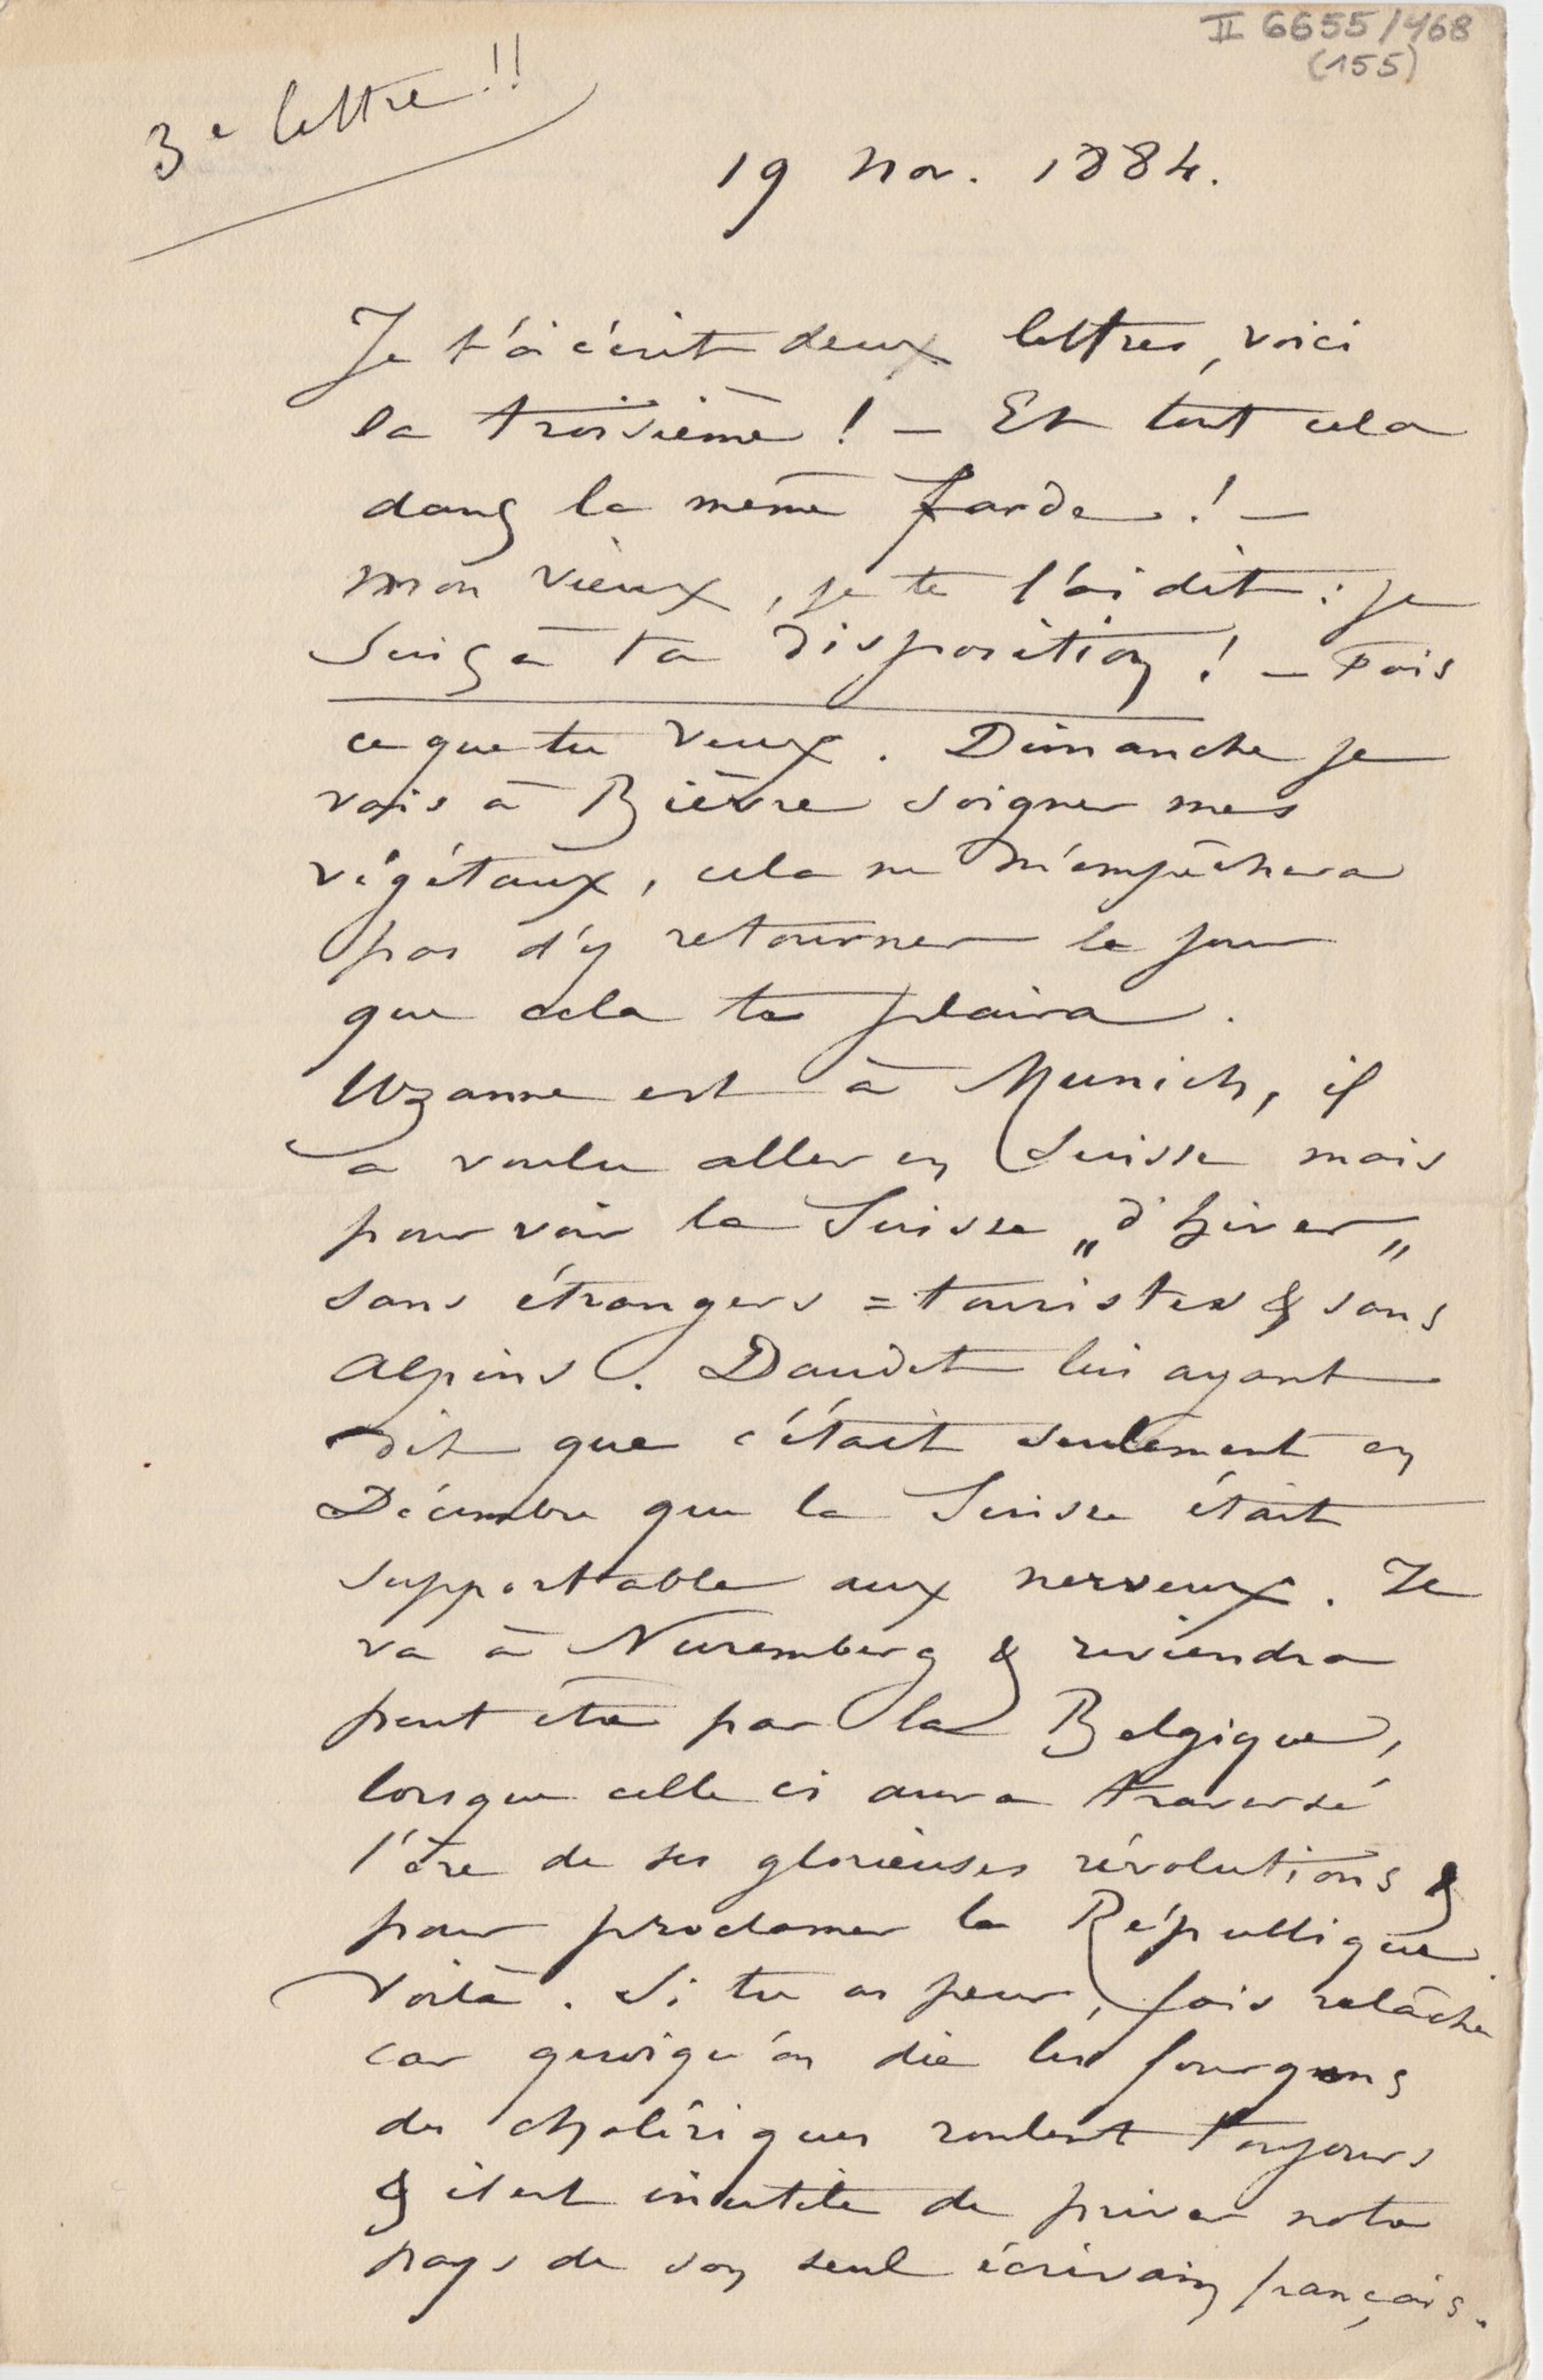 II 6655/468
(155)
3e lettre!!
19 Nov. 1884.
Je t'ai écrit deux lettres, voici
la troisième ! – Et tout cela
dans la même farde ! –
Mon vieux, je te l'ai dit : je
suis à ta disposition ! – Fais
ce que tu veux. Dimanche je
vais à Bièvre soigner mes
végétaux, cela ne m'empêchera
pas d'y retourner le jour
que cela te plaira.
Uzanne est à Munich, il
a voulu aller en Suisse mais
pour voir la Suisse „d'hiver„
sans étrangers = touristes & sans
Alpins. Daudet lui ayant
dit que c'était seulement en
Décembre que la Suisse était
supportable aux nerveux. Il
va à Nuremberg & reviendra
peut être par la Belgique,
lorsque celle ci aura traversé
l'ère de ses glorieuses révolutions &
pour proclamer la République.
Voilà. Si tu as peur, fais relâche
car quoiqu'on die les fourgons
des cholériques roulent toujours
& il est inutile de priver notre
pays de son seul écrivain français.